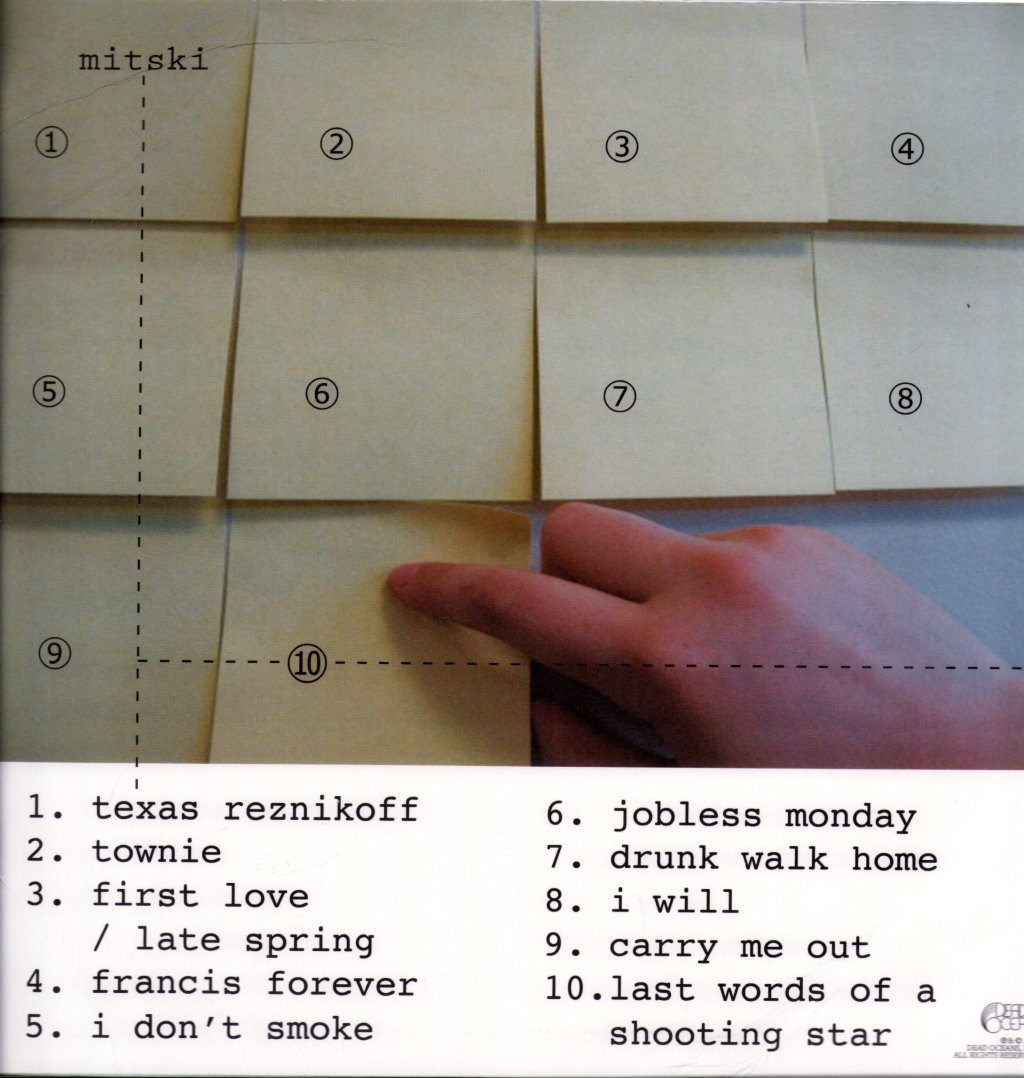 mitski
① ② ③ ④
⑤ ⑥ ⑦ ⑧
⑨ ⑩
1. texas reznikoff
2. townie
3. first love
/ late spring
4. francis forever
5. i don't smoke
6. jobless monday
7. drunk walk home
8. i will
9. carry me out
10.last words of a
shooting star
DEAD
℗ & ©
DEAD OCEANS,
ALL RIGHTS